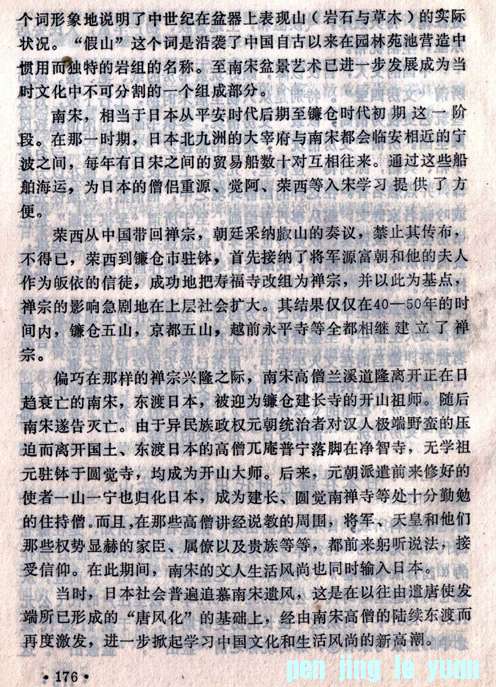 个词形象地说明了中世纪在盆器上表现山（岩石与草木）的实际
状况。“假山”这个词是沿袭了中国自古以来在园林苑池营造中
惯用而独特的岩组的名称。至南宋盆景艺术已进一步发展成为当
时文化中不可分割的一个组成部分。
南宋，相当于日本从平安时代后期至镰仓时代初期这一阶
段。在那一时期，日本北九洲的大宰府与南宋都会临安相近的宁
波之间，每年有日宋之间的贸易船数十对互相往来。通过这些船
舶海运，为日本的僧侣重源、觉阿、荣西等入宋学习提供了方
便。
荣西从中国带回禅宗，朝廷采纳叡山的奏议，禁止其传布，
不得已，荣西到镰仓市驻钵，首先接纳了将军源富朝和他的夫人
作为皈依的信徒，成功地把寿福寺改组为禅宗，并以此为基点，
禅宗的影响急剧地在上层社会扩大。其结果仅仅在40—50年的时
间内，镰仓五山，京都五山，越前永平寺等全都相继建立了禅
宗。
偏巧在那样的禅宗兴隆之际，南宋高僧兰溪道隆离开正在日
趋衰亡的南宋，东渡日本，被迎为镰仓建长寺的开山祖师。随后
南宋遂告灭亡。由于异民族政权元朝统治者对汉人极端野蛮的压
迫而离开国土、东渡日本的高僧兀庵普宁落脚在净智寺，无学祖
元驻钵于圆觉寺，均成为开山大师。后来，元朝派遣前来修好的
使者一山一宁也归化日本，成为建长、圆觉南禅寺等处十分勤勉
的住持僧。而且，在那些高僧讲经说教的周围，将军、天皇和他们
那些权势显赫的家臣、属僚以及贵族等等，都前来躬听说法，接
受信仰。在此期间，南宋的文人生活风尚也同时输入日本。
当时，日本社会普遍追慕南宋遗风，这是在以往由遣唐使发
端所已形成的“唐风化”的基础上，经由南宋高僧的陆续东渡而
再度激发，进一步掀起学习中国文化和生活风尚的新高潮。
·176·
pen jing le yuan